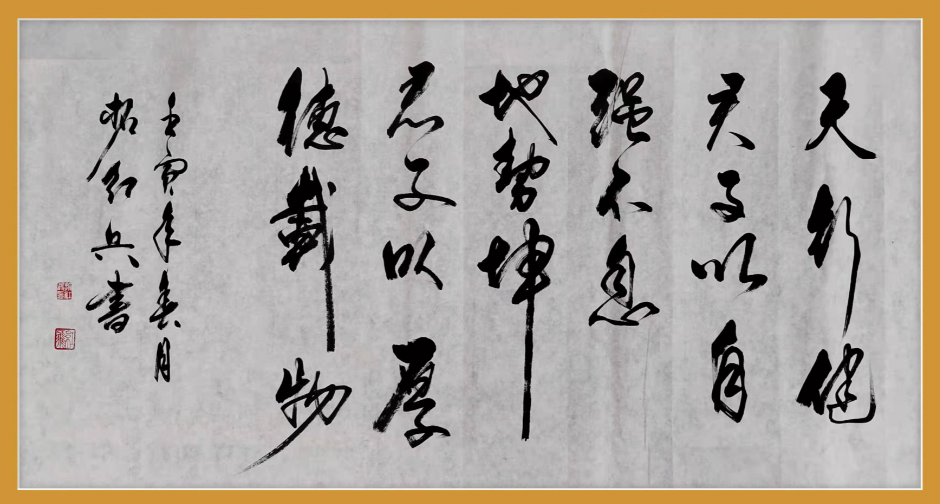 天行健
君子以自
强不息
地势坤
君子以厚
德载物
壬寅年
月
红兵书